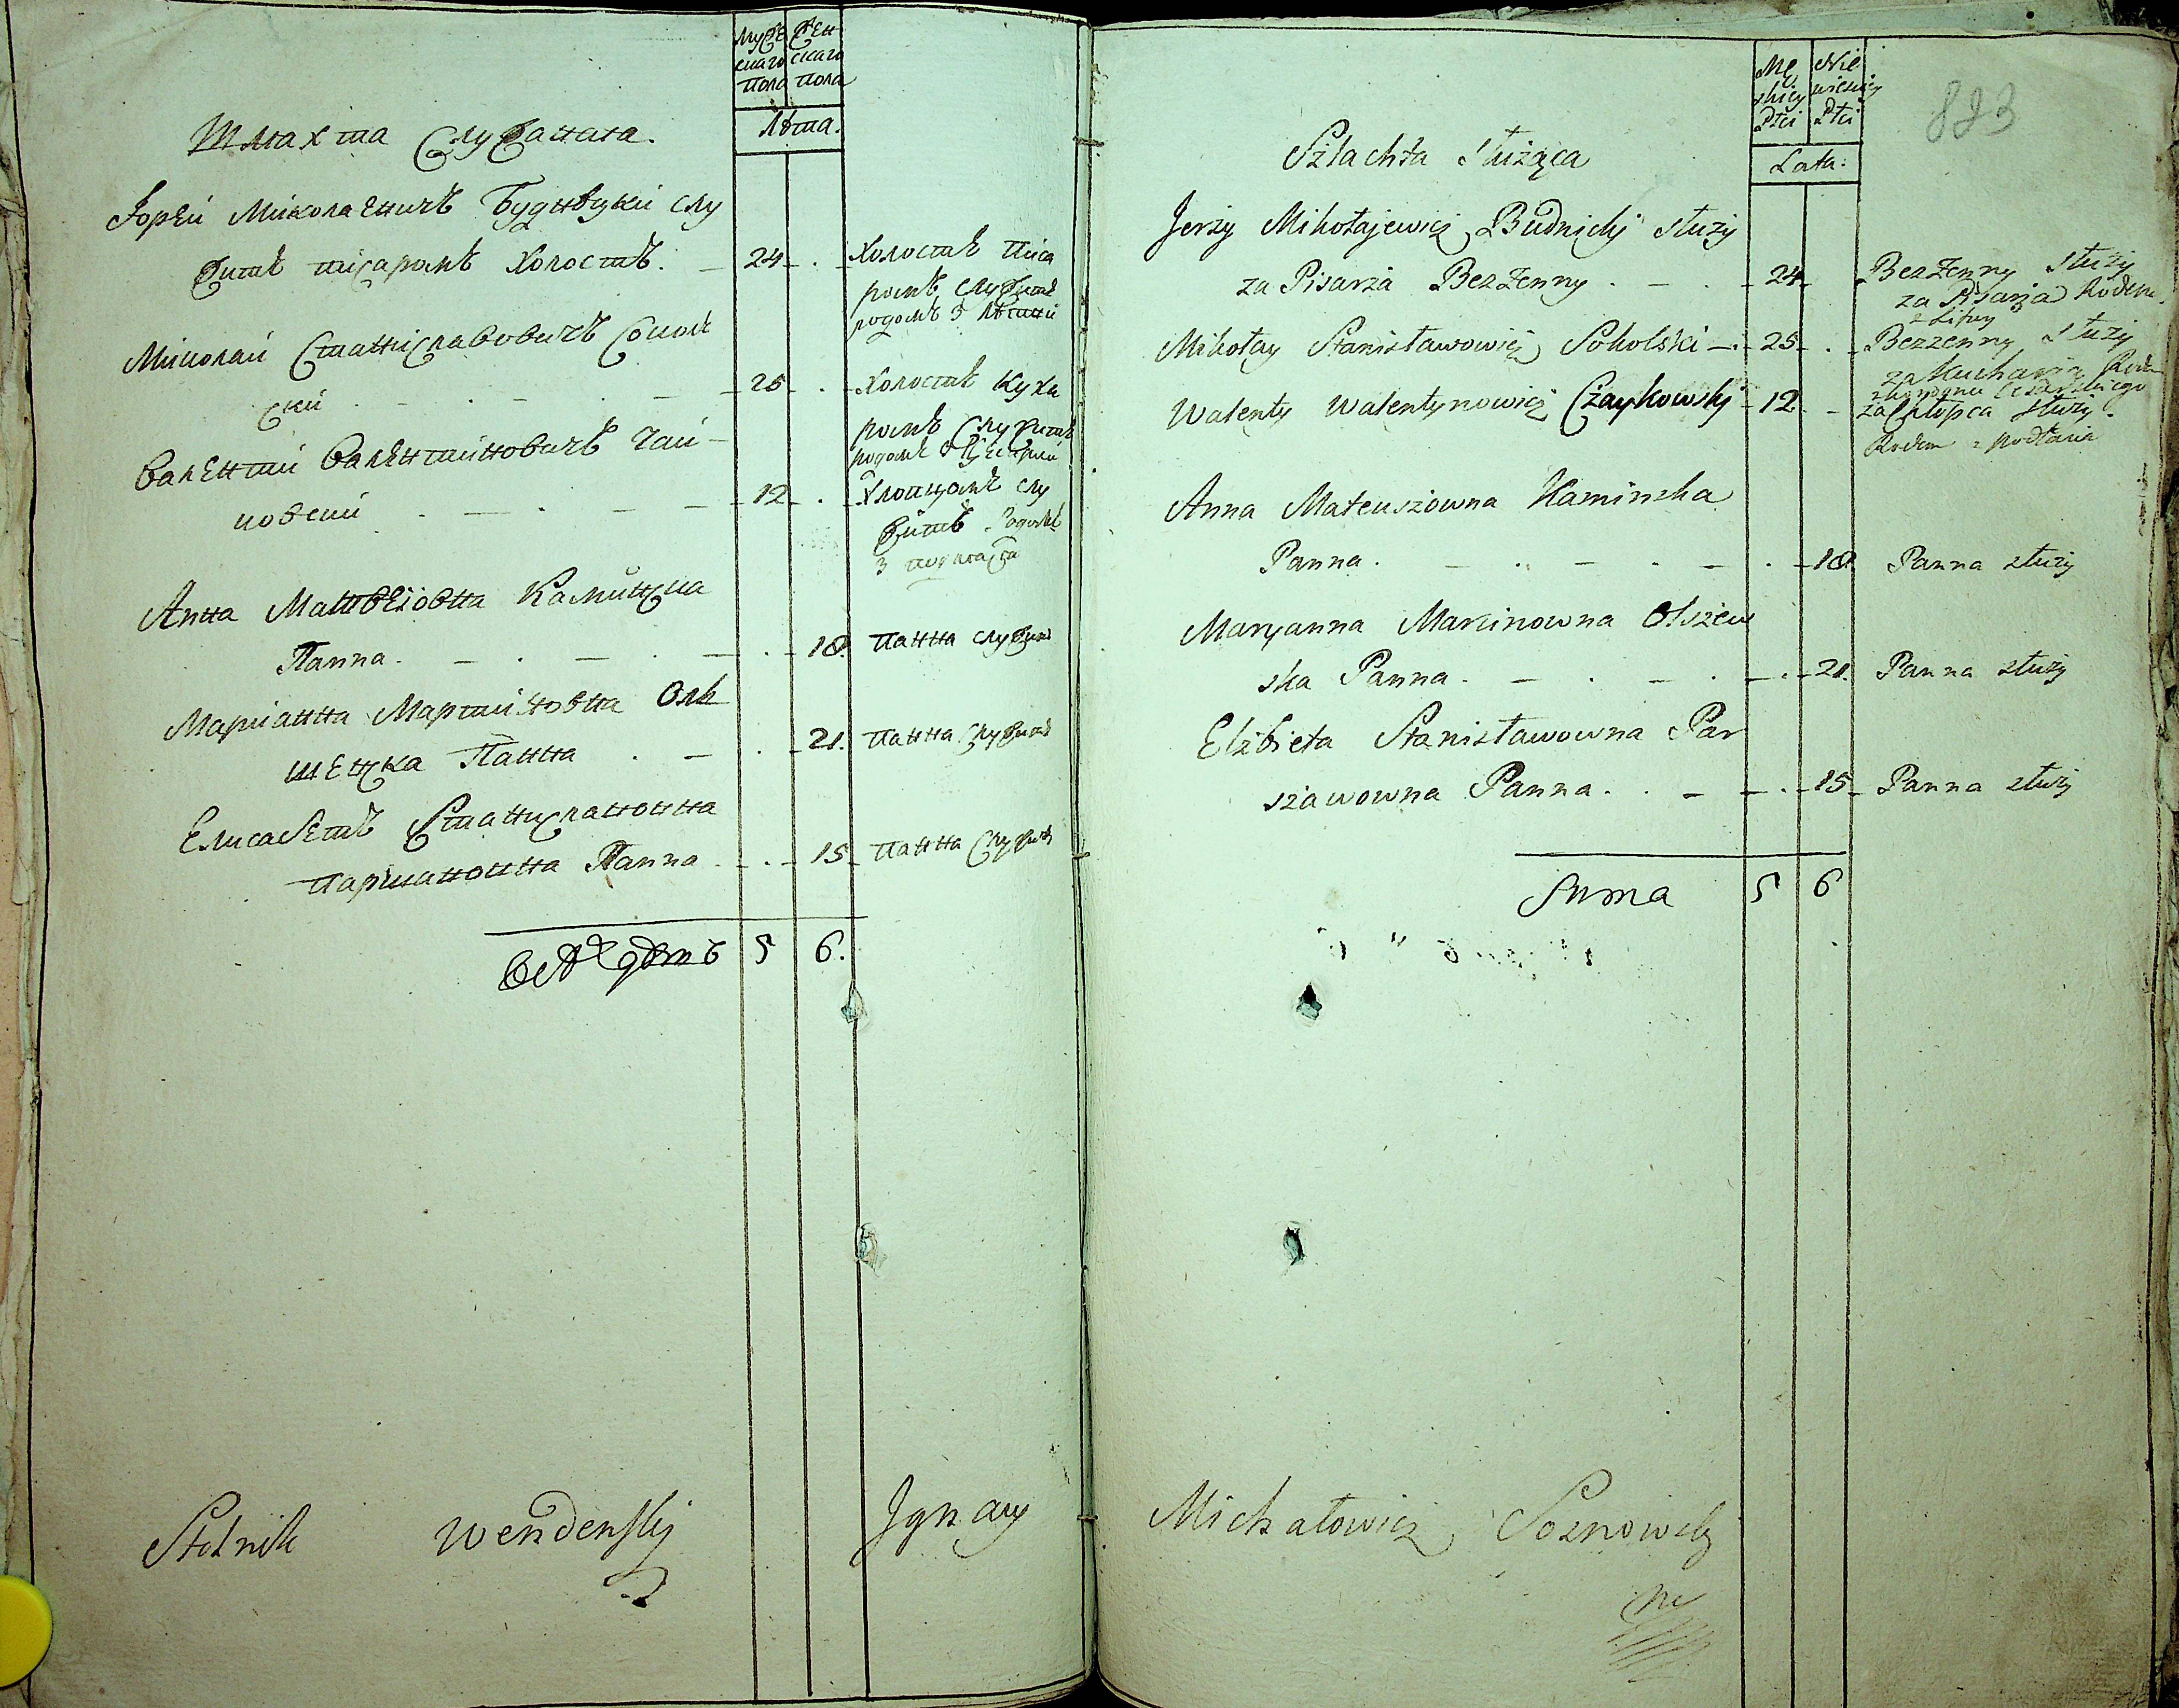 Муже Жен
скаго скаго
пола пола
Лѣта.
Шляхта Служащая.
Юрей Миколаевичъ Будницкий слу
житъ писаромъ холостъ. 24 холостъ писа
ромъ служитъ
родомъ з Литви
Миколай Станиславовичъ Соколь
ский 25 холостъ куха
ромъ служитъ
родомъ
Валентий Валентиновичъ Чай
ковский 12 хлопцомъ слу
житъ родомъ
з подляся
Анна Матвеіовна Каминска
Панна. 18. панна служитъ
Марианна Мартиновна Оль
шевска Панна 21. панна служитъ
Елисабетъ Станиславовна
Паршавовна Панна 15 панна служитъ
5 6.
Stolnik Wendenskij Jgnacy
823
Mę Nie
skiey wiesciey
Płci Płci
Lata:
Szlachta Służąca
Jerzy Mikołajewicz Budnicky służy
za Pisarza Bezżenny 24 Bezżenny służy
za Pisarza Rodem
z Litwy
Mikołay Stanisławowicz Sokolski 25 Bezżenny Służy
za Kucharza Rodem
z kordonu Cesarskiego
Walenty Walentynowicz Czaykowskj 12 za Chłopca służy.
Rodem z Podlasia
Anna Mateuszowna Kaminska
Panna. 18. Panna służy
Maryanna Marcinowna Olszew
ska Panna. 21. Panna służy
Elżbieta Stanisławowna Par
szawowna Panna. 15 Panna służy
Suma 5 6
Michałowicz Sosnowsky